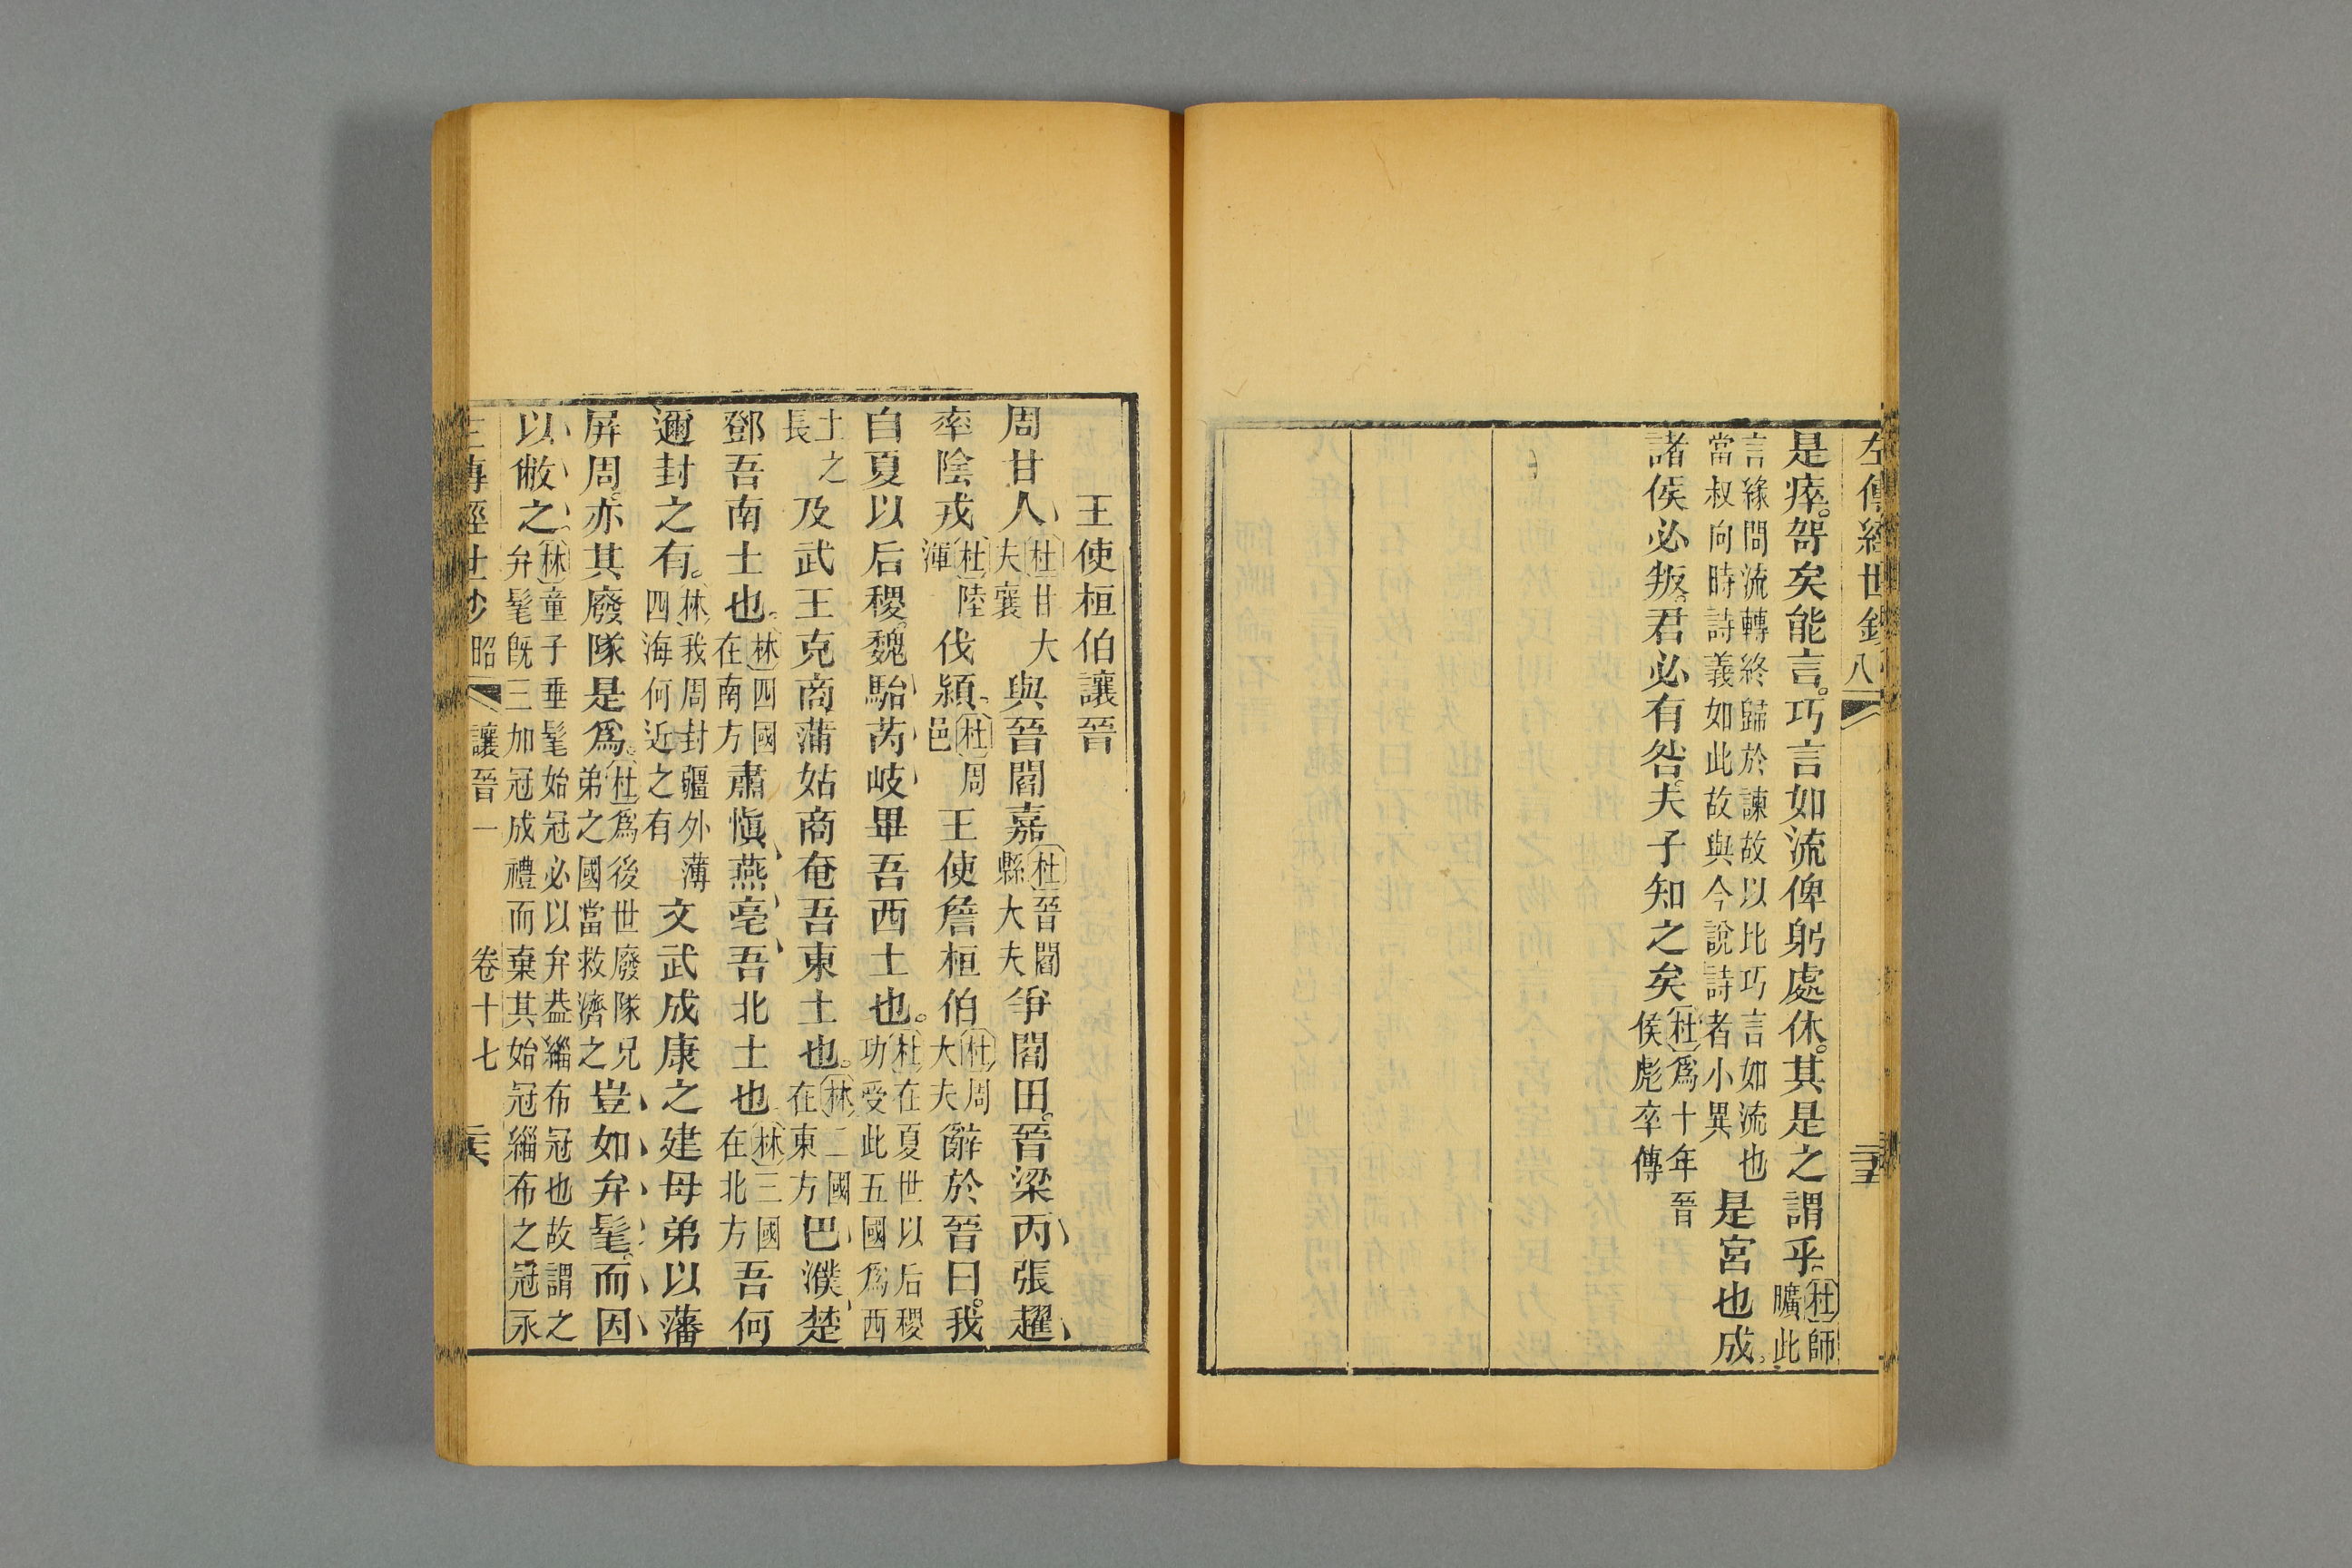 左傳經世鈔 八 二十五
是瘁哿矣能言巧言如流俾躬處休其是之謂乎杜師曠此
言緣問流轉終歸於諫故以比巧言如流也當叔向時詩義如此故與今說詩者小異是宮也成
諸侯必叛君必有咎夫子知之矣杜爲十年晉侯彪卒傳
王使桓伯讓晉
周甘人杜甘大夫襄與晉閻嘉杜晉閻縣大夫爭閻田晉梁丙張趯
率陰戎杜陸渾伐潁杜周邑王使詹桓伯杜周大夫辭於晉曰我
自夏以后稷魏駘芮岐畢吾西土也杜在夏世以后稷功受此五國爲西
土之長及武王克商蒲姑商奄吾東土也林二國在東方巴濮楚
鄧吾南土也林四國在南方肅愼燕亳吾北土也林三國在北方吾何
邇封之有林我周封疆外薄四海何近之有文武成康之建母弟以藩
屏周亦其廢隊是爲杜爲後世廢隊兄弟之國當救濟之豈如弁髦而因
以敝之林童子垂髦始冠必以弁葢緇布冠也故謂之弁髦既三加冠成禮而棄其始冠緇布之冠永
左傳經世鈔 昭 讓晉一 卷十七 二十六